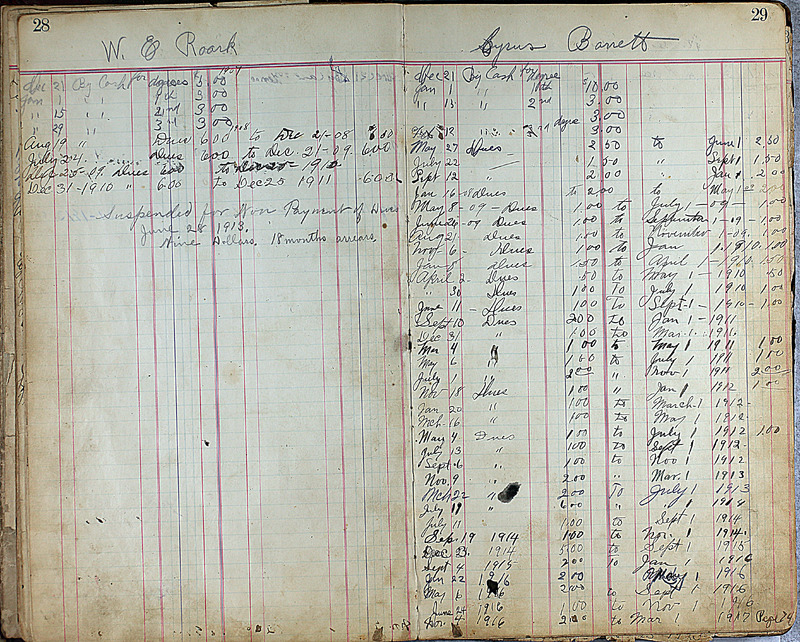 28
W. E Roark
Dec 21 By Cash for degrees 3.00
Jan 1 " " 1st 3 00
" 15 " 2nd 3 00
" 29 " 3rd 3 00
Aug 19 " Dues 6 00 to Dec 21-08 6 00
July 24 Dues 6 00 to Dec. 21-09 6 00
25-09 dues 6 00 to 1910
Dec 31-1910 " 6.00 to Dec 25 1911 -6 00
Suspended for Non Payment of Dues
June 28 1913.
Nine Dollars, 18 months arrears
29
Cyrus Barrett
Dec 21 By Cash for degree
Jan 1 " 10 00
" 15 " 2nd 3.00
degree 3 00
3 00
May 27 Dues 2 50 to June 1 2 50
July 22 1.50 " Sept 1 1.50
Sept 12 2 00 Jan 1 2 00
Jan 16-08 Dues to 2.00 to May 1 2 00
May 8-09-Dues 1.00 to July 1-09- 1.00
June 26-09 Dues 1.00 to September 1-09-1.00
Aug 21- dues 1.00 to November 1-09. 1.00
Nov 6- Dues 1 00 to Jan 1-1910. 1.00
Jan 8 dues 1.50 to April 1-1910. 1.50
April 2- Dues .50 to May 1-1910 .50
" 30 Dues 1 00 To July 1 1910 1.00
June 11- Dues 1 00 To Sept-1-1910-1.00
Sept 10 Dues 2 00 to Jan 1-1911
Dec 31 " 1.00 to Mar. 1.
Mar 4 " 1 00 to May 1 1911 1.00
May 6 " 1.00 to July 1 1911 1.00
July 1 " 2 00 " Nov 1 1911 2.00
Nov 18 Dues 1.00 " Jan 1 1912 1.00
Jan 20 " 1.00 to March.1 1912-
Mch-16 " 1.00 to May 1 1912.
May 4. Dues 1.00 to July 1 1912 1.00
July 13 " 1 00 to Sept 1 1912.
Sept-6 " 1.00 to Nov 1 1912
Nov. 9 " 2.00 " Mar. 1 1913
Mch 22 " 2.00 To July 1 1913
July 19 " 6 00 " " 1914
July 11 1.00 to Sept 1 1914
Sep 19 1914 1 00 to Nov. 1 1914.
Dec 23. 1914 5.00 to Sept 1 1915
Sept 4 1915 2 00 to Jan 1 1916
Jan 22 1916 2 00 May 1 1916
May 6 1916 2 00 to Sept 1 1916
June 24 1916 1 00 to Nov 1 1916
Nov. 4 1916 2 00 to Mar 1 1917 Page 74